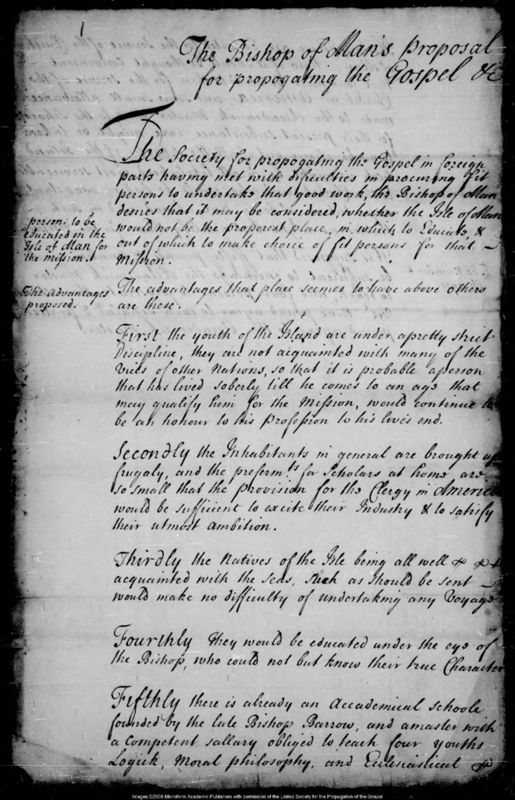 1
The Bishop of Man's Proposal
for propogating the Gospel &c
The Society for propogating the Gospel in foreign
parts having met with dificulties in procuring fit
persons to undertake that good work, the Bishop of Man
desires that it may be considered, whether the Isle of Man
would not be the properest place, in which to Educate, &
out of which to make choice of fit persons for that
Mission.
persons to be
Educated in the
Isle of Man for
the mission.
The advantages that place seems to have above others
are these.
The Advantages
proposed.
First the youth of the Island are under a pretty strict
Discipline, they are not acquainted with many of the
Vices of other Nations, so that it is probable a person
that has lived soberly till he comes to an age that
may qualify him for the Mission, would continue to
be an honour to his Profession to his live's end.
Secondly the Inhabitants in general are brought up
frugaly, and the preferm.ts for Scholars at home are
so small that the provision for the Clergy in America
would be sufficient to excite their Industry & to satisfy
their utmost ambition.
Thirdly the Natives of the Isle being all well
acquainted with the Seas, such as should be sent
would make no difficulty of undertaking any Voyage
Fourthly they would be educated under the eye of
the Bishop, who could not but know their true Character
Fifthly there is already an Accademical Schoole
founded by the late Bishop Barrow, and a master with
a Competent sallary obliged to teach four youths
Logick, Moral philosophy, and Ecclesiastical
Images ©2008 Microform Academic Publishers with permission of the United Society for the Propagation of the Gospel